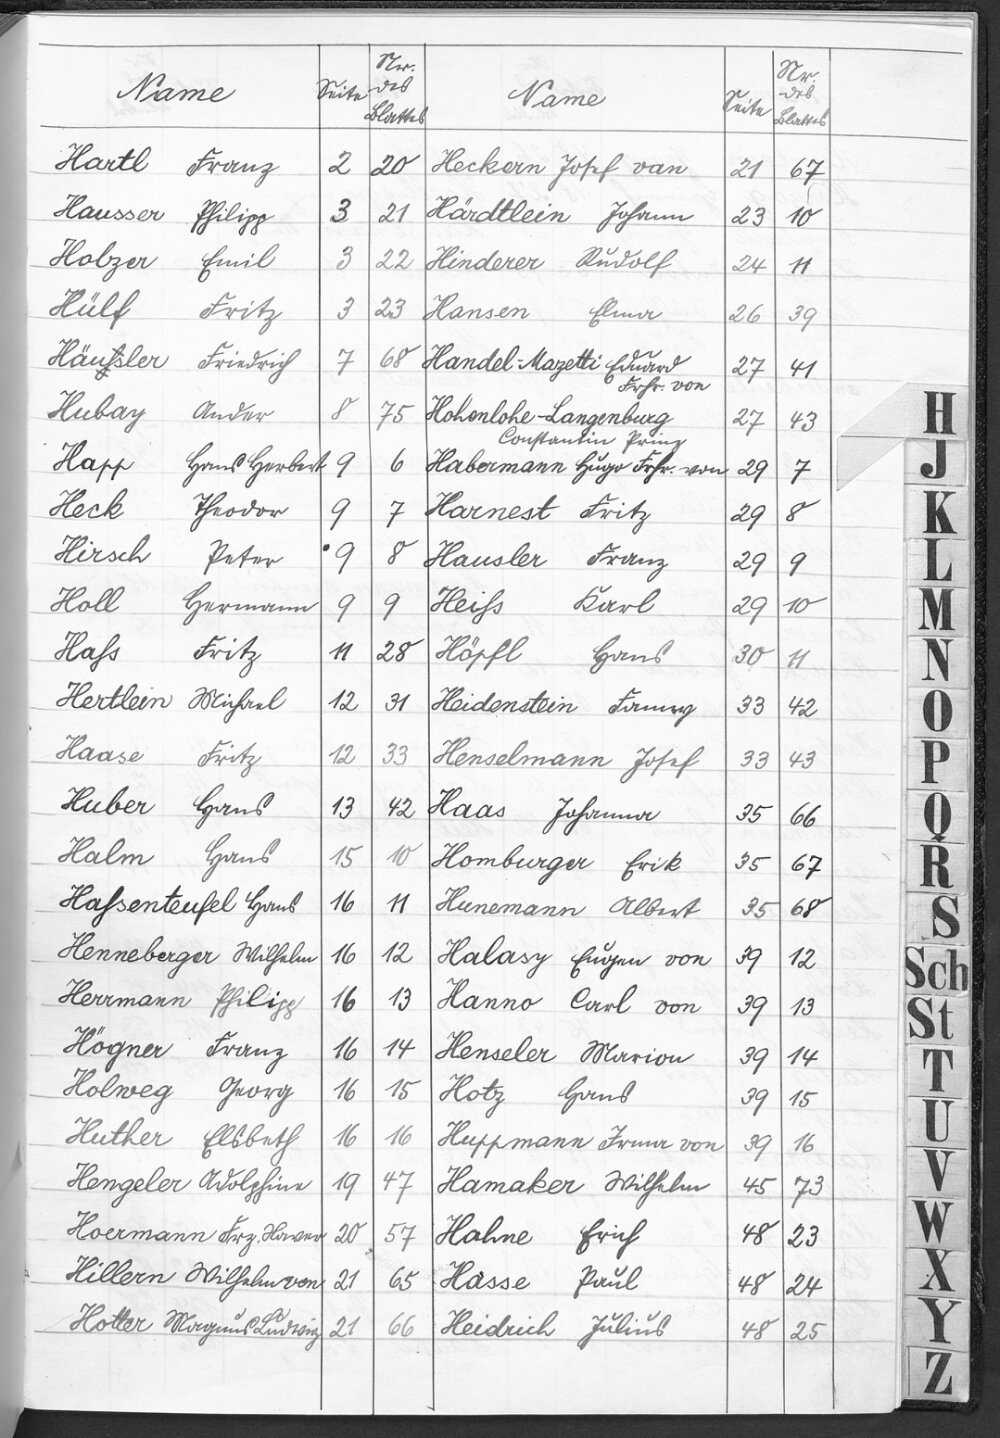 Name Seite Nr. des Blattes Name Seite Nr. des Blattes
Hartl Franz 2 20 Heckern Josef van 21 67
Hausser Philipp 3 21 Härdtlein Johann 23 10
Holzer Emil 3 22 Hinderer Rudolf 24 11
Hülf Fritz 3 23 Hansen Elma 26 39
Häußler Friedrich 7 68 Handel-Mazetti Eduard Frhr. von 27 41
Hubay Andor 8 75 Hohenlohe-Langenburg Constantin Prinz 27 43
Happ Hans Herbert 9 6 Habermann Hugo Frhr. von 29 7
Heck Theodor 9 7 Harnest Fritz 29 8
Hirsch Peter 9 8 Hausler Franz 29 9
Holl Hermann 9 9 Heiß Karl 29 10
Haß Fritz 11 28 Höpfl Hans 30 11
Hertlein Michael 12 31 Heidenstein Fanny 33 42
Haase Fritz 12 33 Henselmann Josef 33 43
Huber Hans 13 42 Haas Johanna 35 66
Halm Hans 15 10 Homburger Erik 35 67
Haßenteufel Hans 16 11 Hunemann Albert 35 68
Henneberger Wilhelm 16 12 Halasy Eugen von 39 12
Herrmann Philipp 16 13 Hanno Carl von 39 13
Högner Franz 16 14 Henseler Marion 39 14
Holweg Georg 16 15 Hotz Hans 39 15
Huther Elsbeth 16 16 Huppmann Irma von 39 16
Hengeler Adolphine 19 47 Hamaker Wilhelm 45 73
Hoermann Frz. Xaver 20 57 Hahne Erich 48 23
Hillern Wilhelm von 21 65 Hasse Paul 48 24
Hotter Magnus Ludwig 21 66 Heidrich Julius 48 25
H
J
K
L
M
N
O
P
Q
R
S
Sch
St
T
U
V
W
X
Y
Z